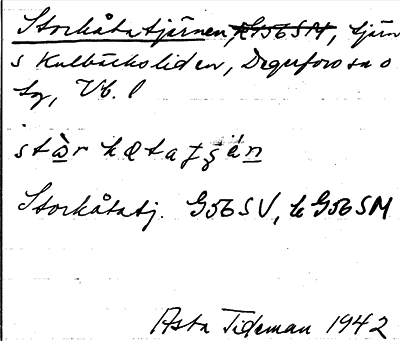 Storkåtatjärnen, k G56SM, tjärn
s Kulbäcksliden, Degerfors sn o
tg, Vb. l
Storkåtatj. G56SV, k G56SM
Asta Tideman 1942